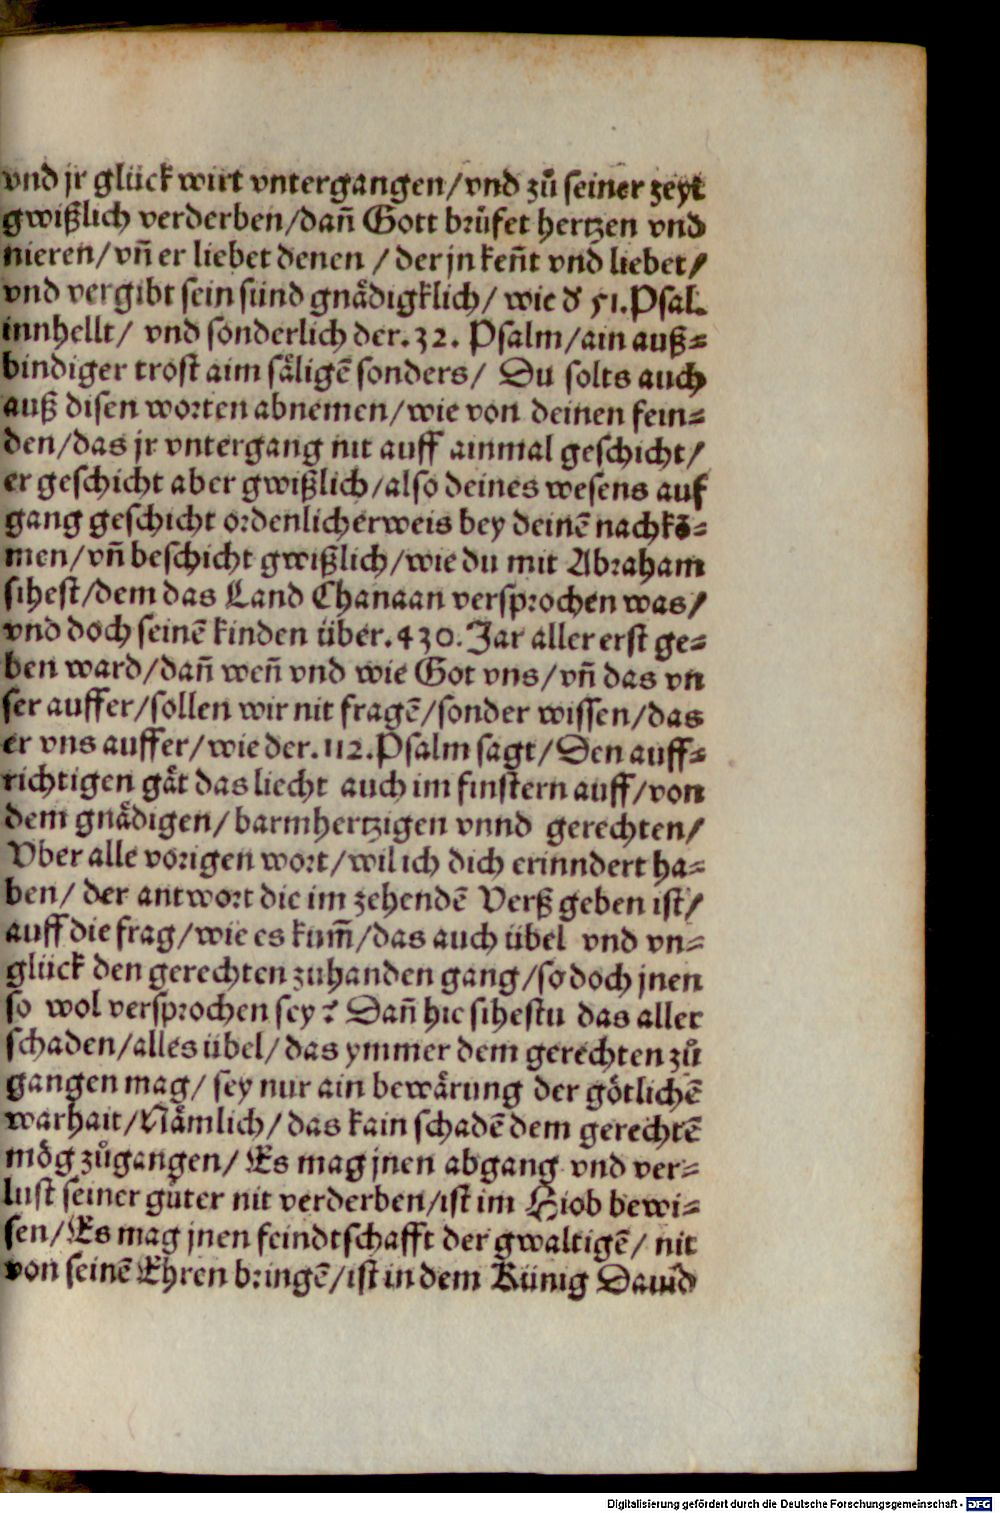 vnd jr glück wirt vntergangen/vnd zů seiner zeyt
gwißlich verderben/dañ Gott brůfet hertzen vnd
nieren/vñ er liebet denen / der jn keñt vnd liebet/
vnd vergibt sein sünd gnådigklich/ wie d̕ 51. Psal.
innhellt/ vnd sonderlich der. 32. Psalm/ain auß⸗
bindiger trost aim såligē sonders/ Du solts auch
auß disen worten abnemen/wie von deinen fein⸗
den/das jr vntergang nit auff ainmal geschicht/
er geschicht aber gwißlich/also deines wesens auf
gang geschicht ordenlicherweis bey deinē nachkō⸗
men/vñ beschicht gwißlich/wie du mit Abraham
sihest/dem das Land Chanaan versprochen was/
vnd doch seinē kinden über. 430. Jar aller erst ge⸗
ben ward/dañ weñ vnd wie Got vns/vñ das vn
ser auffer/sollen wir nit fragē/sonder wissen/das
er vns auffer/wie der. 112. Psalm sagt/Den auff⸗
richtigen gåt das liecht auch im finstern auff/von
dem gnådigen/barmhertzigen vnnd gerechten/
Vber alle vorigen wort/wil ich dich erinndert ha⸗
ben/ der antwort die im zehendē Verß geben ist/
auff die frag/wie es kum̃/das auch übel vnd vn⸗
glück den gerechten zuhanden gang/so doch jnen
so wol versprochen sey? Dañ hie sihestu das aller
schaden/alles übel/das ymmer dem gerechten zů
gangen mag/ sey nur ain bewårung der götlichē
warhait/Nåmlich/das kain schadē dem gerechtē
mög zůgangen/ Es mag jnen abgang vnd ver⸗
lust seiner gůter nit verderben/ist im Hiob bewi⸗
sen/Es mag jnen feindtschafft der gwaltigē/ nit
von seinē Ehren bringē/ist in dem Künig Dauid
Digitalisierung gefördert durch die Deutsche Forschungsgemeinschaft - DFG